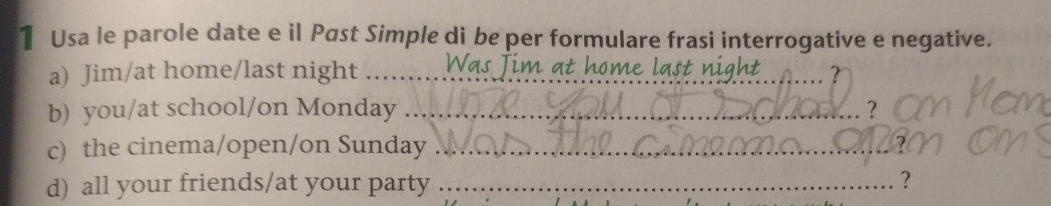 1 Usa le parole date e il Past Simple di be per formulare frasi interrogative e negative.
a) Jim/at home/last night ....... Was Jim at home last night .......?
b) you/at school/on Monday ....... Were you at school .......? on
c) the cinema/open/on Sunday ....... Was the cinema open .......? on
d) all your friends/at your party .......?